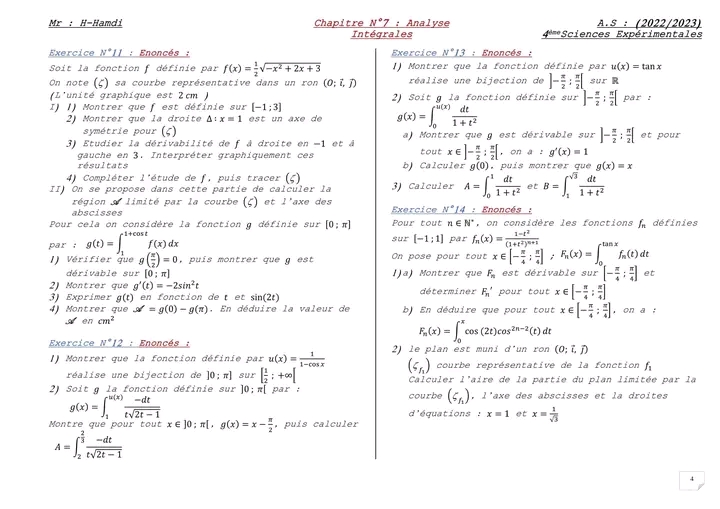 Mr : H-Hamdi
Chapitre N°7 : Analyse
Intégrales
A.S : (2022/2023)
4èmeSciences Expérimentales
Exercice N°11 : Enoncés :
Soit la fonction f définie par f(x) = 1/2 √(−x² + 2x + 3)
On note (ζ) sa courbe représentative dans un ron (O; i⃗, j⃗)
(L'unité graphique est 2 cm )
I) 1) Montrer que f est définie sur [−1 ; 3]
2) Montrer que la droite Δ : x = 1 est un axe de
symétrie pour (ζ)
3) Etudier la dérivabilité de f à droite en −1 et à
gauche en 3. Interpréter graphiquement ces
résultats
4) Compléter l'étude de f, puis tracer (ζ)
II) On se propose dans cette partie de calculer la
région 𝒜 limité par la courbe (ζ) et l'axe des
abscisses
Pour cela on considère la fonction g définie sur [0 ; π]
par : g(t) = ∫₁^(1+cos t) f(x) dx
1) Vérifier que g(π/2) = 0, puis montrer que g est
dérivable sur [0 ; π]
2) Montrer que g′(t) = −2sin²t
3) Exprimer g(t) en fonction de t et sin(2t)
4) Montrer que 𝒜 = g(0) − g(π). En déduire la valeur de
𝒜 en cm²
Exercice N°12 : Enoncés :
1) Montrer que la fonction définie par u(x) = 1/(1−cos x)
réalise une bijection de ]0 ; π] sur [1/2 ; +∞[
2) Soit g la fonction définie sur ]0 ; π[ par :
g(x) = ∫₁^(u(x)) −dt/(t√(2t − 1))
Montre que pour tout x ∈ ]0 ; π[, g(x) = x − π/2, puis calculer
A = ∫₂^(2/3) −dt/(t√(2t − 1))
Exercice N°13 : Enoncés :
1) Montrer que la fonction définie par u(x) = tan x
réalise une bijection de ]−π/2 ; π/2[ sur ℝ
2) Soit g la fonction définie sur ]−π/2 ; π/2[ par :
g(x) = ∫₀^(u(x)) dt/(1 + t²)
a) Montrer que g est dérivable sur ]−π/2 ; π/2[ et pour
tout x ∈ ]−π/2 ; π/2[, on a : g′(x) = 1
b) Calculer g(0), puis montrer que g(x) = x
3) Calculer A = ∫₀^1 dt/(1 + t²) et B = ∫₁^(√3) dt/(1 + t²)
Exercice N°14 : Enoncés :
Pour tout n ∈ ℕ*, on considère les fonctions fₙ définies
sur [−1 ; 1] par fₙ(x) = (1−t²)/(1+t²)ⁿ⁺¹
On pose pour tout x ∈ [−π/4 ; π/4] ; Fₙ(x) = ∫₀^(tan x) fₙ(t) dt
1)a) Montrer que Fₙ est dérivable sur [−π/4 ; π/4] et
déterminer Fₙ′ pour tout x ∈ [−π/4 ; π/4]
b) En déduire que pour tout x ∈ [−π/4 ; π/4], on a :
Fₙ(x) = ∫₀^x cos (2t)cos²ⁿ⁻²(t) dt
2) le plan est muni d'un ron (O; i⃗, j⃗)
(ζf₁) courbe représentative de la fonction f₁
Calculer l'aire de la partie du plan limitée par la
courbe (ζf₁), l'axe des abscisses et la droites
d'équations : x = 1 et x = 1/√3
4